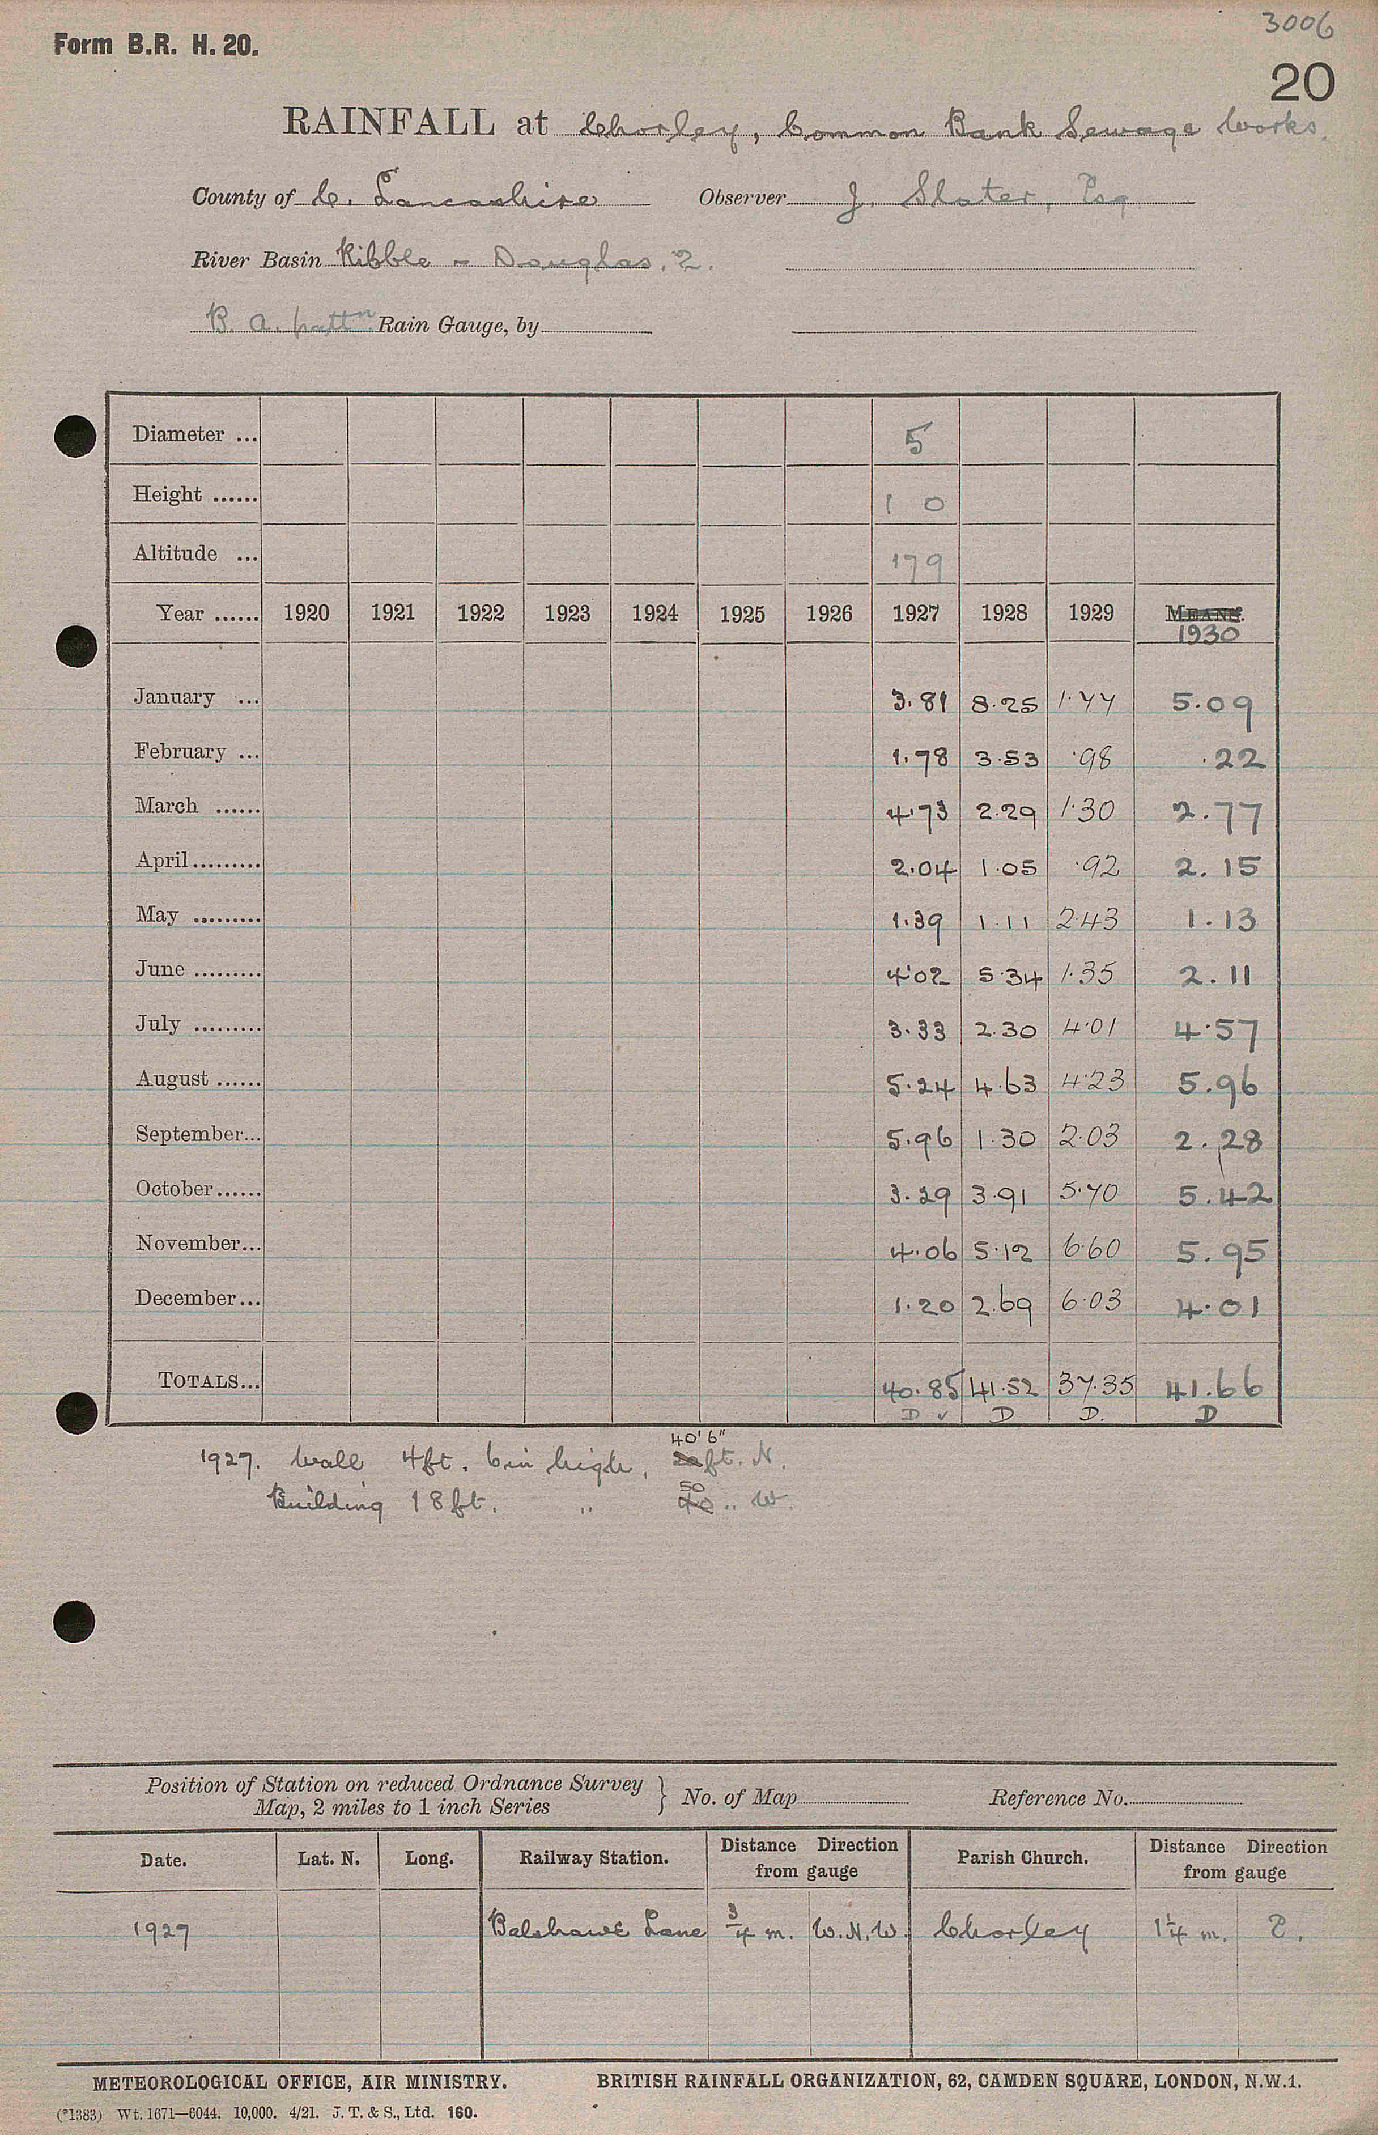 3006
Form B.R. H. 20.
20
RAINFALL at Chorley, Common Bank Sewage Works.
County of C. Lancashire Observer J. Slater, Esq
River Basin Ribble - Douglas. 2.
B. A. pattn Rain Gauge, by
Diameter ... 5
Height ...... 1 0
Altitude ... 179
Year ...... 1920 1921 1922 1923 1924 1925 1926 1927 1928 1929 MEANS.
1930
January ... 3.81 8.25 1.77 5.09
February ... 1.78 3.53 .98 .22
March ...... 4.73 2.29 1.30 2.77
April ......... 2.04 1.05 .92 2.15
May ......... 1.39 1.11 2.43 1.13
June ......... 4.02 5.34 1.35 2.11
July ......... 3.33 2.30 4.01 4.57
August ...... 5.24 4.63 4.23 5.96
September... 5.96 1.30 2.03 2.28
October...... 3.29 3.91 5.70 5.42
November... 4.06 5.12 6.60 5.95
December... 1.20 2.69 6.03 4.01
TOTALS... 40.85 41.52 37.35 41.66
D ✓ D D. D
40' 6"
1927. Wall 4ft. 6in high, ft. N.
50
Building 18ft. " 40 " W.
Position of Station on reduced Ordnance Survey
Map, 2 miles to 1 inch Series } No. of Map Reference No.
Date. Lat. N. Long. Railway Station. Distance Direction from gauge Parish Church. Distance Direction from gauge
1927 Balshawe Lane 3/4 m. W.N.W. Chorley 1 1/4 m. E.
METEOROLOGICAL OFFICE, AIR MINISTRY. BRITISH RAINFALL ORGANIZATION, 62, CAMDEN SQUARE, LONDON, N.W.1.
(*1383) Wt. 1671—6044. 10,000. 4/21. J. T. & S., Ltd. 160.